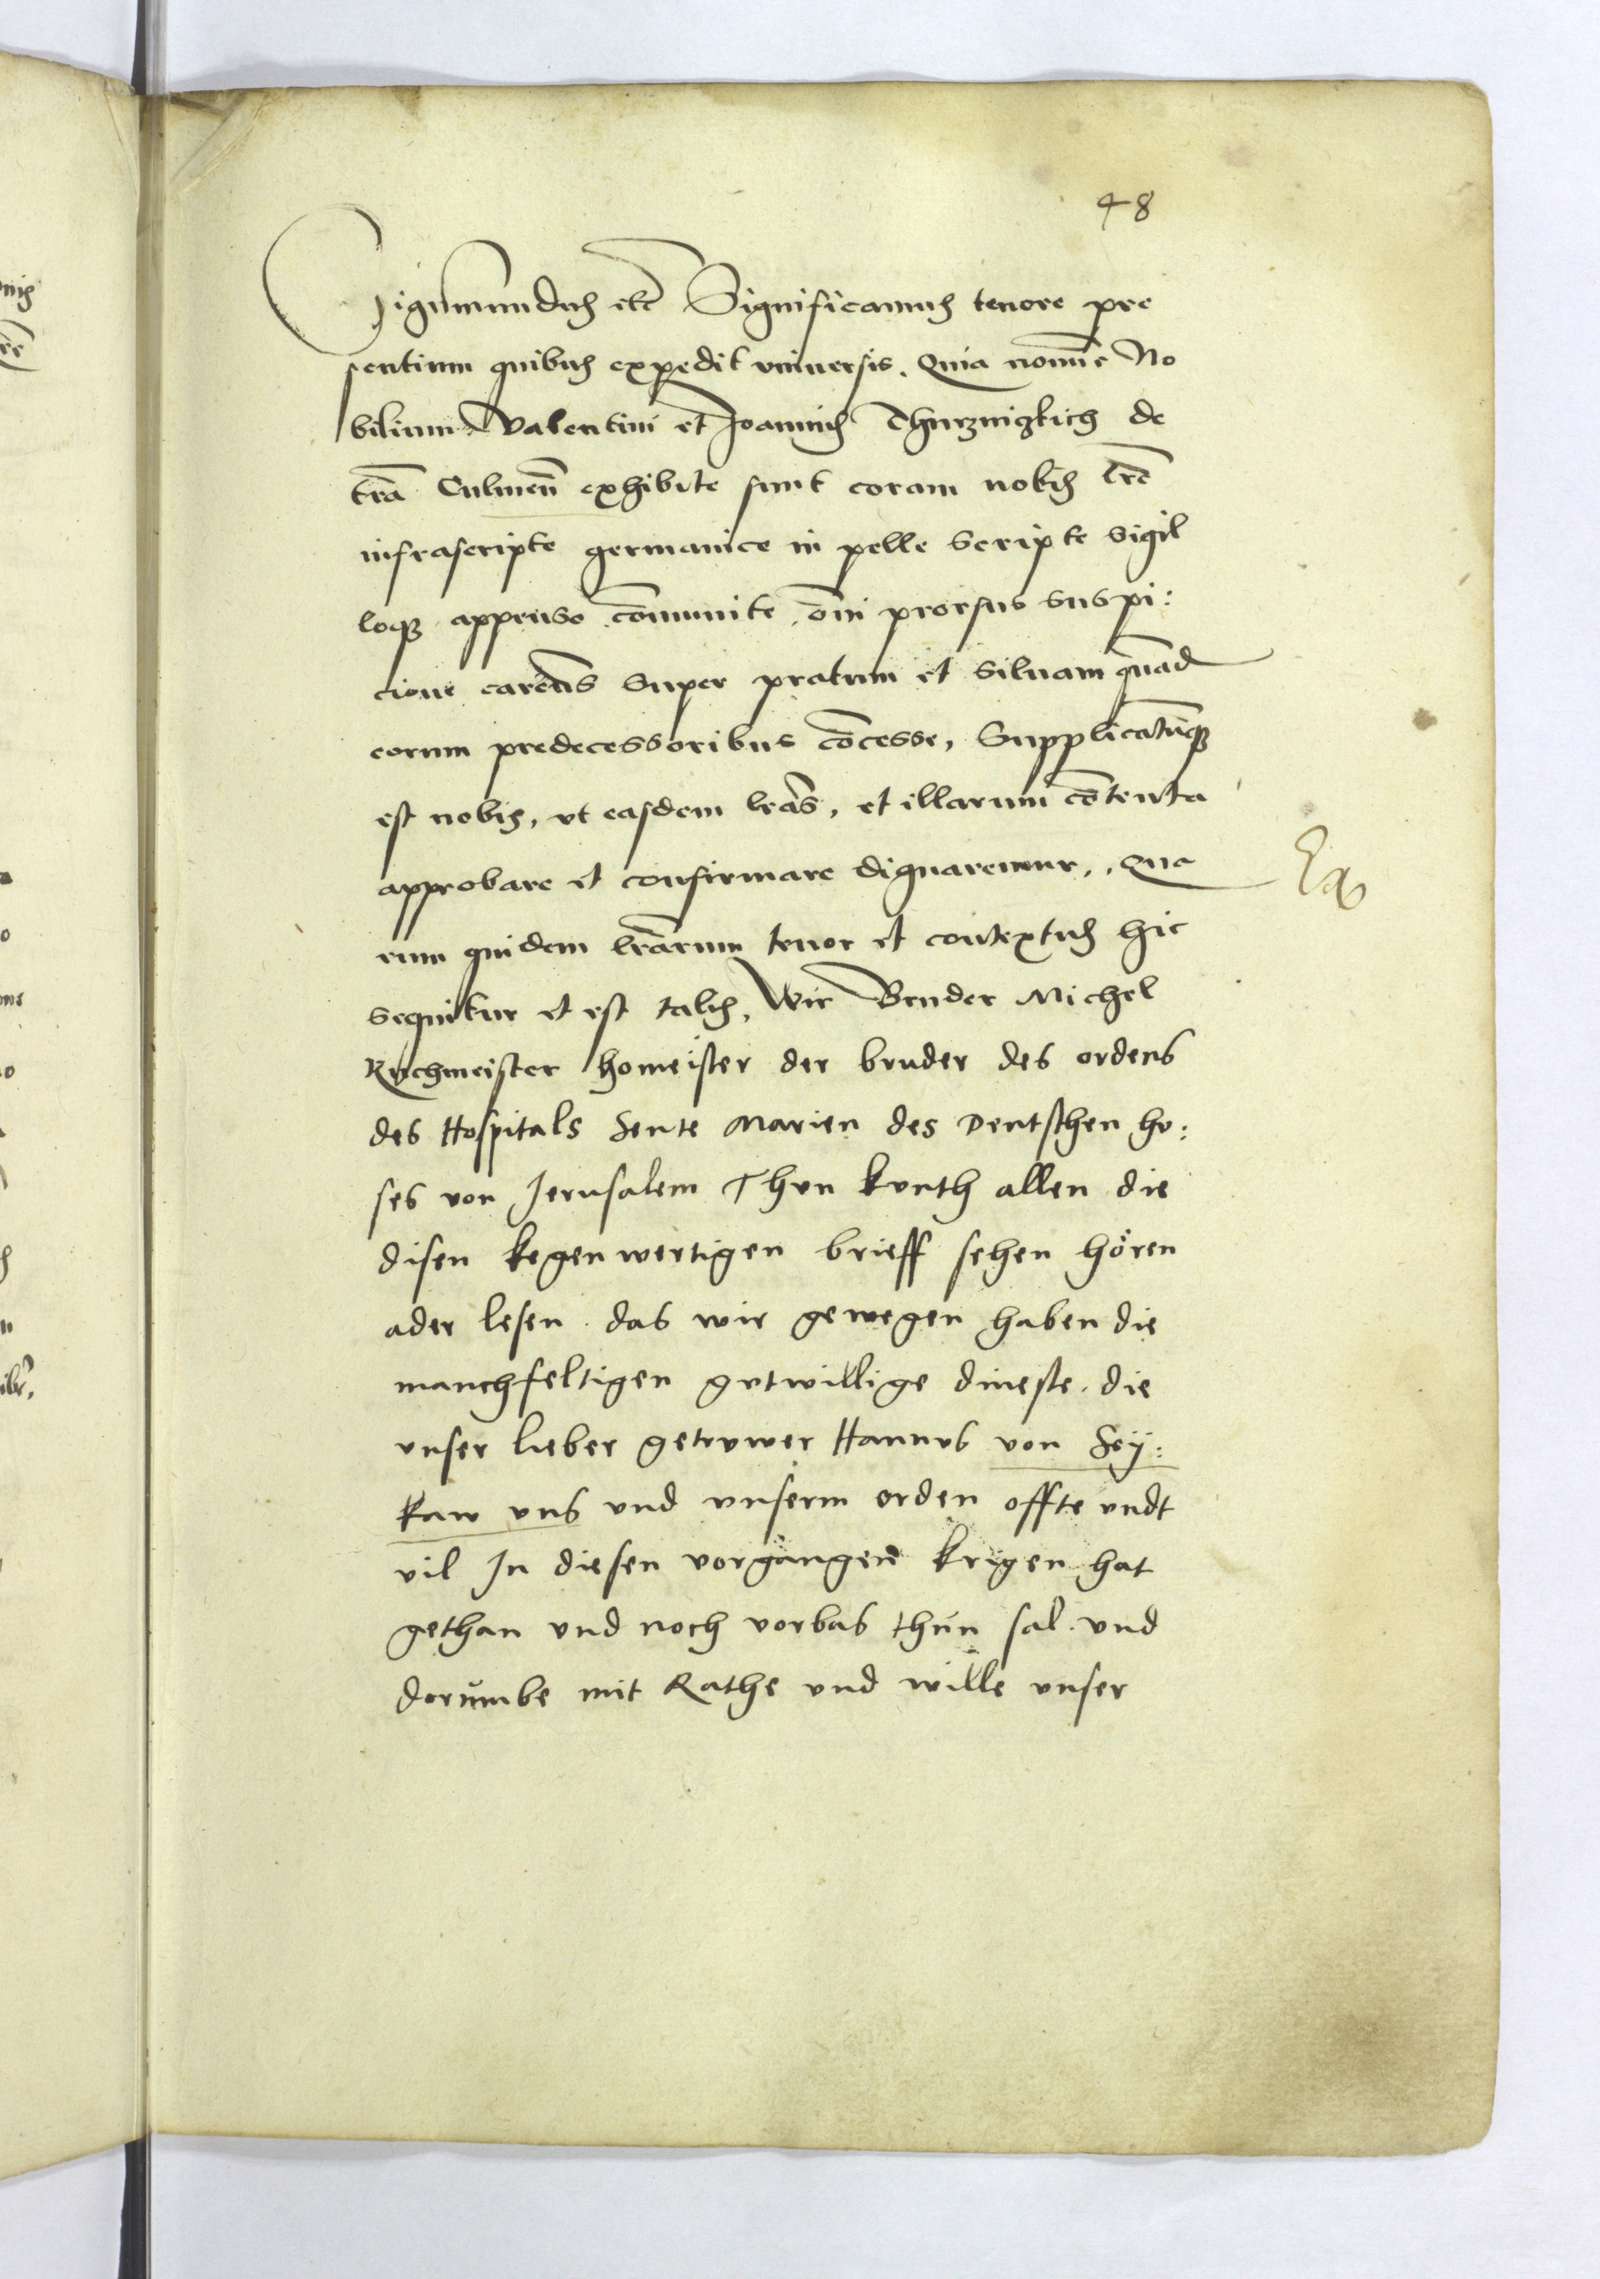 48
Sigismundus etc Significamus tenore pre
sentium quibus expedit vniuersis. Quia nomīe No
bilium Valentini et Joannis Thurznizkich de
trā Culmeñ exhibite sunt coram nobis lrē
infrascripte germanice in pelle scripte sigil
loqꝫ appenso cōmunite, om̄i prorsus suspi:
cione careñs super pratum et siluam quād
eorum predecessoribus cōcesse, Supplicatūqꝫ
est nobis, vt easdem lrās, et illarum cōtenta
approbare et confirmare dignaremur, . Qua
rum quidem lrārum tenor et contextus hic
sequitur et est talis, Wir Bruder Michel
Kuchmeister homeister der bruder des ordens
des Hospitals Sente Marien des Deutschen hv:
ses von Jerusalem Thvn kvnth allen die
disen kegenwertigen brieff sehen hören
ader lesen das wir gewegen haben die
manchfeltigen gvtwillige dineste die
vnser lieber getrvwer Hannvs von Sey:
kaw vns vnd vnserm orden offte vndt
vil In diesen vorgangen̄ krigen hat
gethan vnd noch vorbas thun sal vnd
dorumbe mit Rathe vnd wille vnser